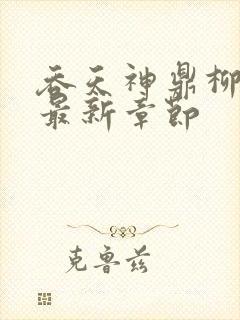 吞天神鼎柳
最新章节
克鲁兹